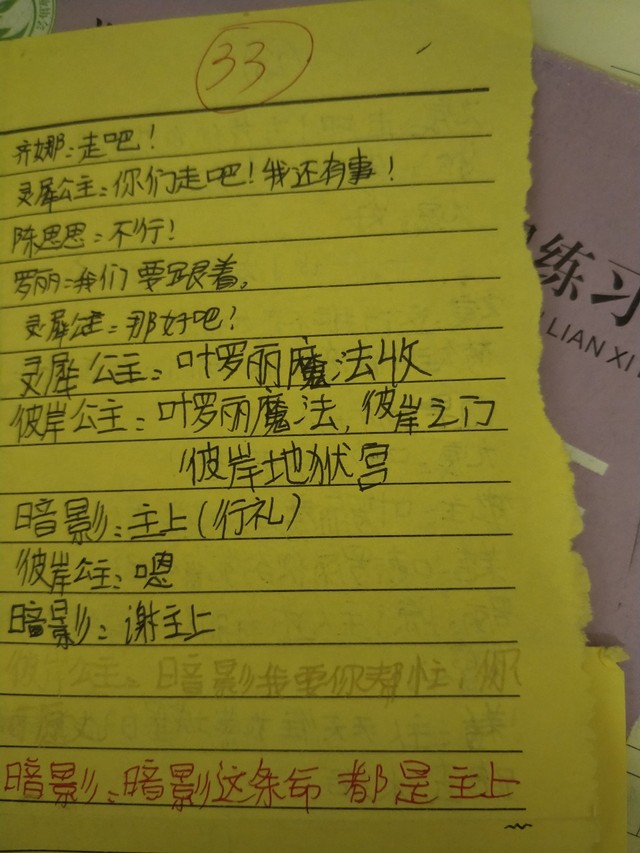 33
齐娜:走吧!
灵犀公主:你们走吧!我还有事!
陈思思:不行!
罗丽:我们要跟着。
灵犀公主:那好吧?
灵犀公主:叶罗丽魔法收
彼岸公主:叶罗丽魔法,彼岸之门
彼岸地狱宫
暗影:主上(行礼)
彼岸公主:嗯
暗影:谢主上
彼岸公主:暗影我要你帮忙,你
暗影:暗影这条命都是主上
练习
LIAN XI